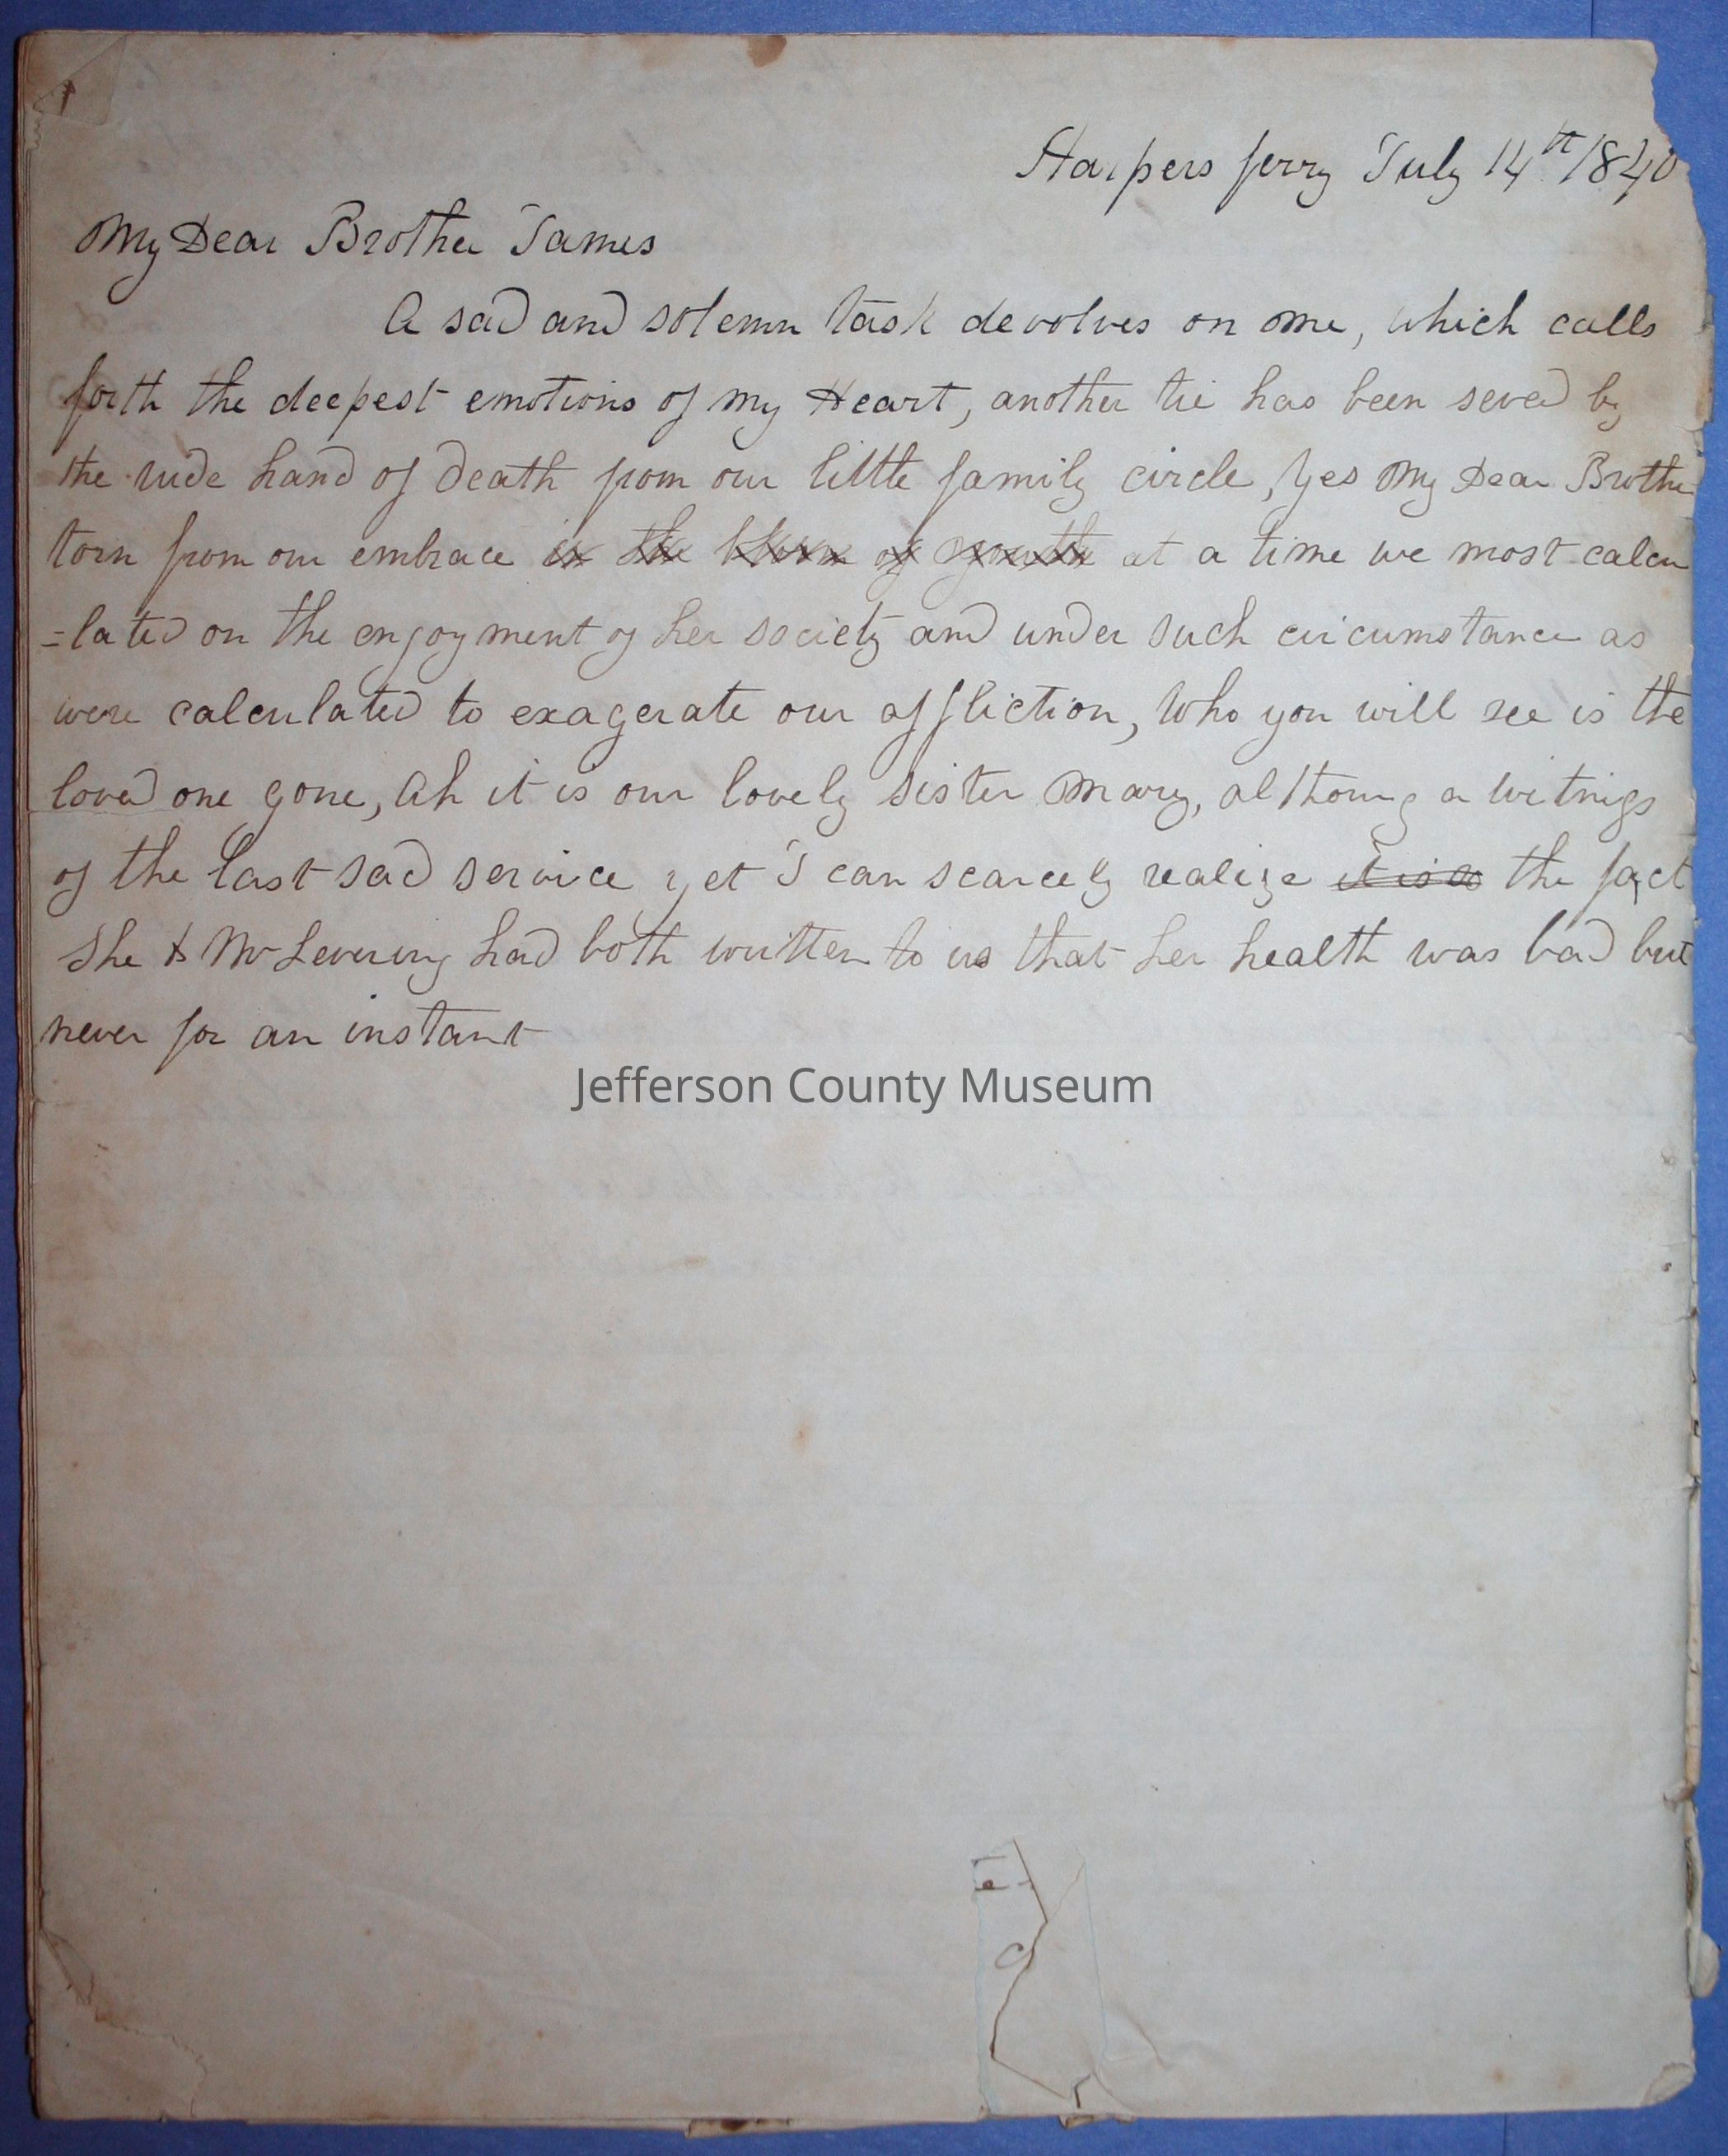 Harpers ferry July 14th 1840
My Dear Brother James
A sad and solemn task devolves on me, which calls
forth the deepest emotions of my Heart, another tie has been severd by
the rude hand of death from our little family circle, Yes My Dear Brother
torn from our embrace in the bloom of youth at a time we most calcu
=lated on the enjoyment of her society and under such circumstance as
were calculated to exagerate our affliction, Who you will see is the
loved one gone, Ah it is our lovely Sister Mary, although a witness
of the last sad service yet I can scarcely realize it is so the fact
She & Mr Levering had both written to us that her health was bad but
never for an instant
Jefferson County Museum